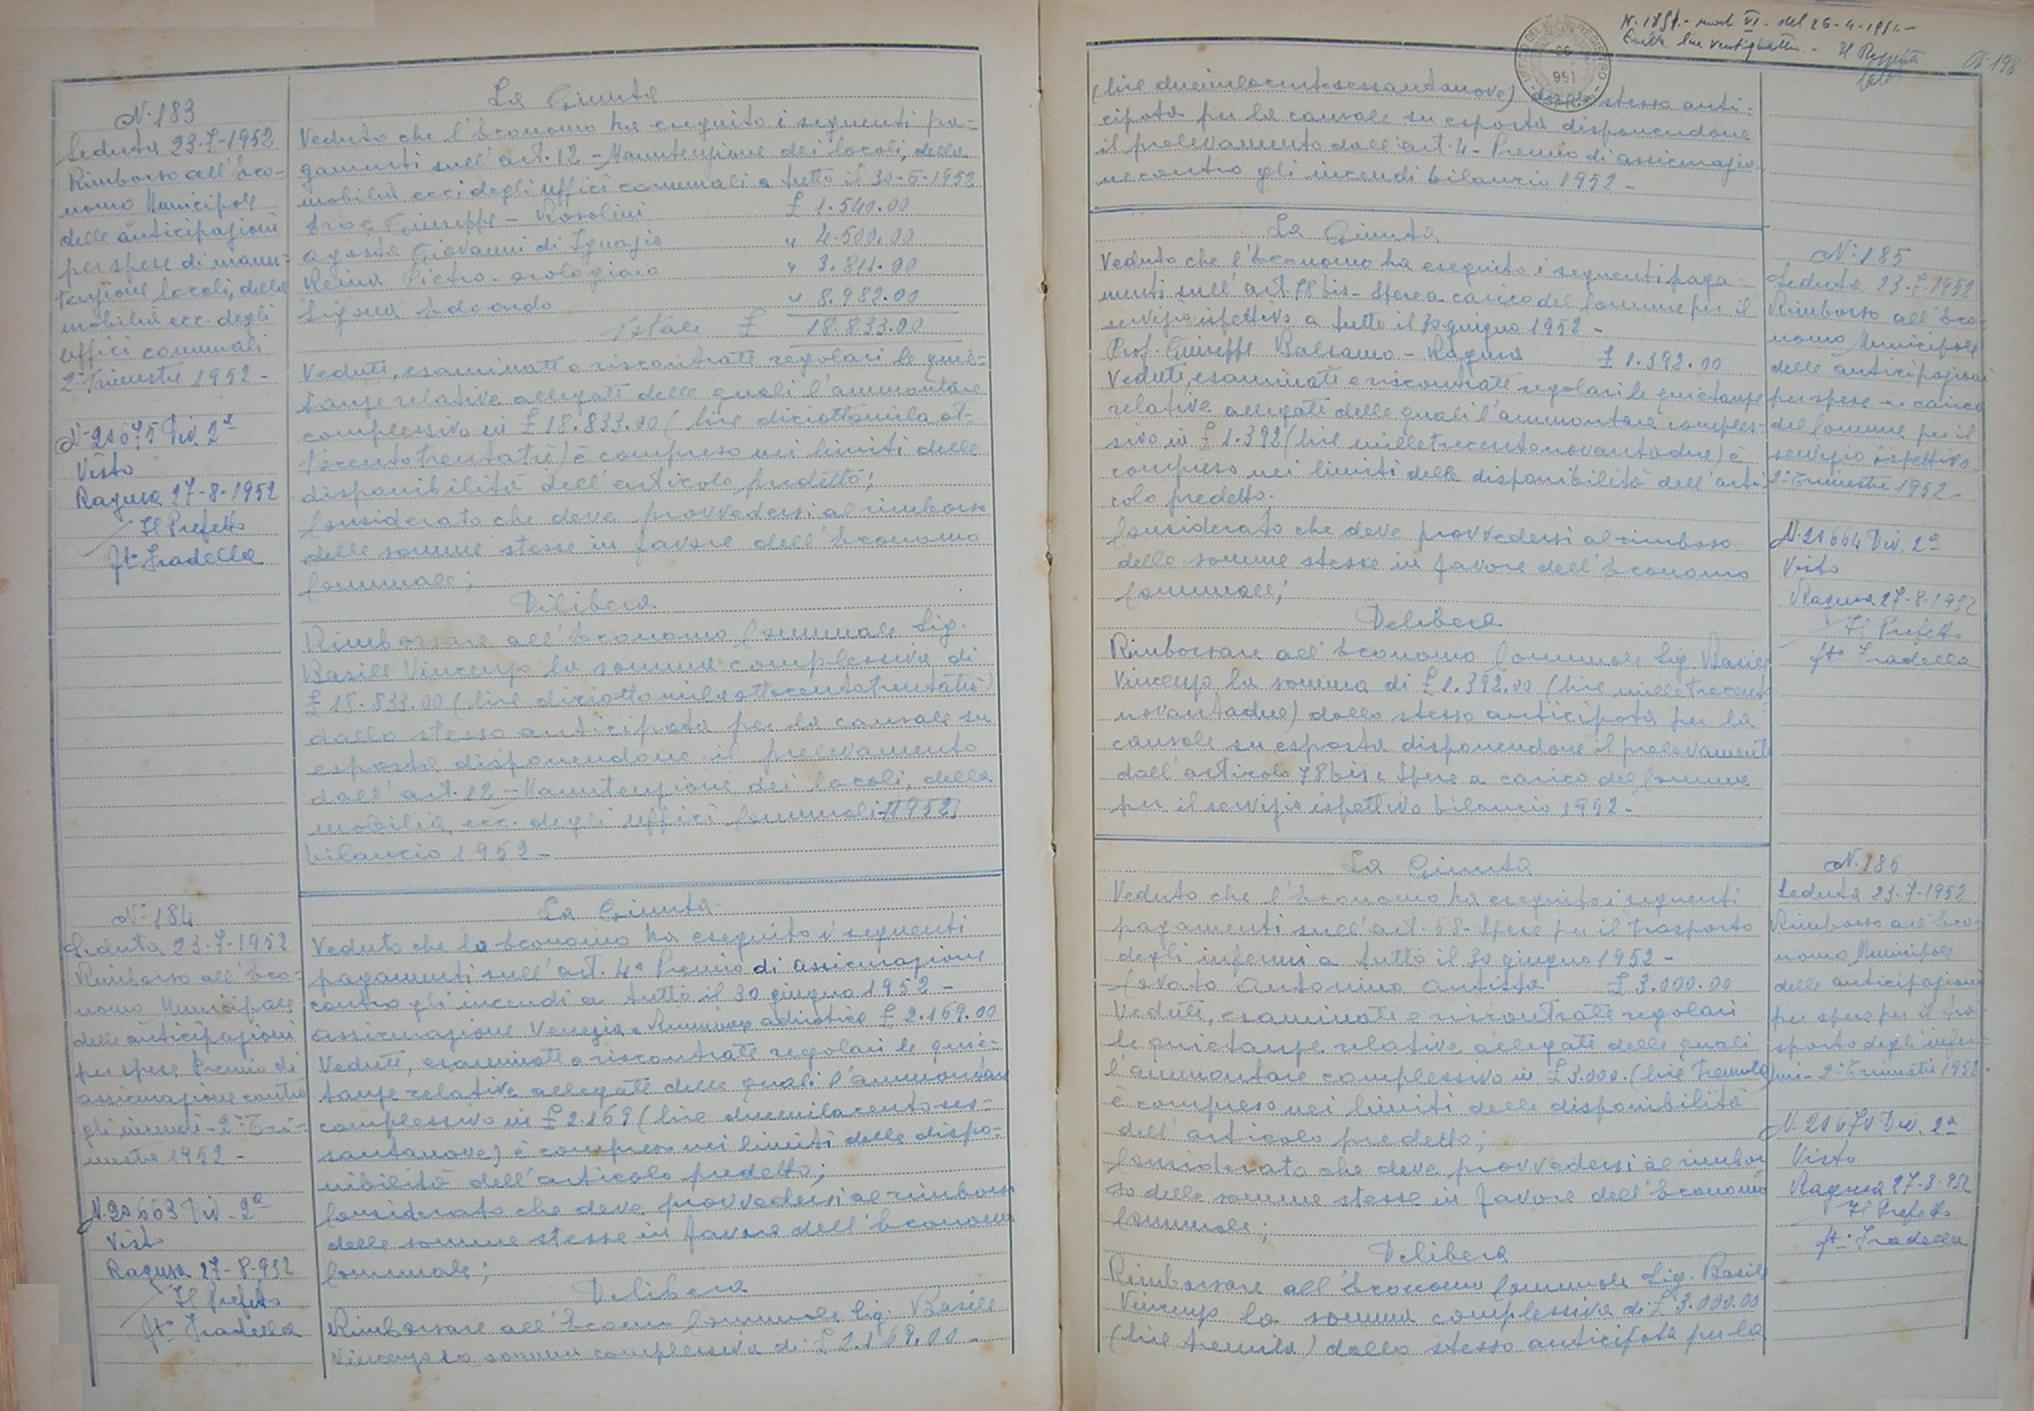 N. 183
Seduta 23-7-1952
Rimborso all'Eco-
nomo Municipale
delle anticipazioni
per spese di manu-
tenzione locali, della
mobilia ecc. degli
uffici comunali
2° Trimestre 1952-
N. 20675 Div. 2ª
Visto
Ragusa 27-8-1952
Il Prefetto
fto Fradella
La Giunta
Veduto che l'Economo ha eseguito i seguenti pa-
gamenti sull'art. 12 - Manutenzione dei locali, della
mobilia ecc. degli uffici comunali a tutto il 30-6-1952
Giuseppe - Rosolini £ 1.540.00
Agosta Giovanni di Ignazio " 4.500.00
Reina Pietro - orologiaio " 3.811.00
Edoardo " 8.982.00
Totale £ 18.833.00
Veduti, esaminati e riscontrati regolari le quie-
tanze relative allegate delle quali l'ammontare
complessivo in £ 18.833.00 (lire diciottomila ot-
tocentotrentatrè) è compreso nei limiti delle
disponibilità dell'articolo predetto;
Considerato che deve provvedersi al rimborso
delle somme stesse in favore dell'Economo
Comunale;
Delibera
Rimborsare all'Economo Comunale Sig.
Basile Vincenzo la somma complessiva di
£ 18.833.00 (lire diciottomilaottocentotrentatrè)
dallo stesso anticipata per la causale su
esposta disponendone il prelevamento
dall'art. 12 - Manutenzione dei locali, della
mobilia, ecc. degli uffici Comunali 1952
bilancio 1952-
N. 184
Seduta 23-7-1952
Rimborso all'Eco-
nomo Municipale
delle anticipazioni
per spese Premio di
assicurazione contro
gli incendi - 2° Tri-
mestre 1952-
N. 20663 Div. 2ª
Visto
Ragusa 27-8-952
Il Prefetto
fto Fradella
La Giunta
Veduto che lo Economo ha eseguito i seguenti
pagamenti sull'art. 4° Premio di assicurazione
contro gli incendi a tutto il 30 giugno 1952-
assicurazione Venezia Riunione adriatica £ 2.169.00
Veduti, esaminati e riscontrati regolari le quie-
tanze relative allegate delle quali l'ammontare
complessivo in £ 2.169 (lire duemilacentoses-
santanove) è compreso nei limiti delle dispo-
nibilità dell'articolo predetto;
Considerato che deve provvedersi al rimborso
delle somme stesse in favore dell'Economo
Comunale;
Delibera
Rimborsare all'Economo Comunale Sig. Basile
Vincenzo la somma complessiva di £ 2.169.00-
N. 1851 - mod VI - del 26-4-1951-
951
(lire duemilacentosessantanove) dallo stesso anti-
cipata per la causale su esposta disponendone
il prelevamento dall'art. 4 - Premio di assicurazio-
ne contro gli incendi bilancio 1952-
La Giunta
Veduto che l'Economo ha eseguito i seguenti paga-
menti sull'art. 78 bis - Spese a carico del Comune per il
servizio ispettivo a tutto il 30 giugno 1952-
Prof. Giuseppe Balsamo - Ragusa £ 1.392.00
Veduti, esaminati e riscontrati regolari le quietanze
relative allegate delle quali l'ammontare comples-
sivo in £ 1.392 (lire milletrecentonovantadue) è
compreso nei limiti delle disponibilità dell'arti-
colo predetto.
Considerato che deve provvedersi al rimborso
delle somme stesse in favore dell'Economo
Comunale;
Delibera
Rimborsare all'Economo Comunale Sig. Basile
Vincenzo la somma di £ 1.392.00 (lire milletrecento
novantadue) dallo stesso anticipata per la
causale su esposta disponendone il prelevamento
dall'articolo 78 bis Spese a carico del Comune
per il servizio ispettivo bilancio 1952-
N. 185
Seduta 23-7-1952
Rimborso all'Eco-
nomo Municipale
delle anticipazioni
per spese a carico
del Comune per il
servizio ispettivo
2° Trimestre 1952-
N. 20664 Div. 2ª
Visto
Ragusa 27-8-1952
Il Prefetto
fto Fradella
La Giunta
Veduto che l'Economo ha eseguito i seguenti
pagamenti sull'art. 68 - Spese per il trasporto
degli infermi a tutto il 30 giugno 1952-
Cavato Antonino autista £ 3.000.00
Veduti, esaminati e riscontrati regolari
le quietanze relative allegate delle quali
l'ammontare complessivo in £ 3.000. (lire tremila)
è compreso nei limiti delle disponibilità
dell'articolo predetto;
Considerato che deve provvedersi al rimbor
so delle somme stesse in favore dell'Economo
Comunale;
Delibera
Rimborsare all'Economo Comunale Sig. Basile
Vincenzo la somma complessiva di £ 3.000.00
(lire tremila) dallo stesso anticipata per la
N. 186
Seduta 23-7-1952
Rimborso all'Eco-
nomo Municipale
delle anticipazioni
per spese per il tra-
sporto degli infer-
mi - 2° Trimestre 1952-
N. 20670 Div. 2ª
Visto
Ragusa 27-8-952
Il Prefetto
fto Fradella